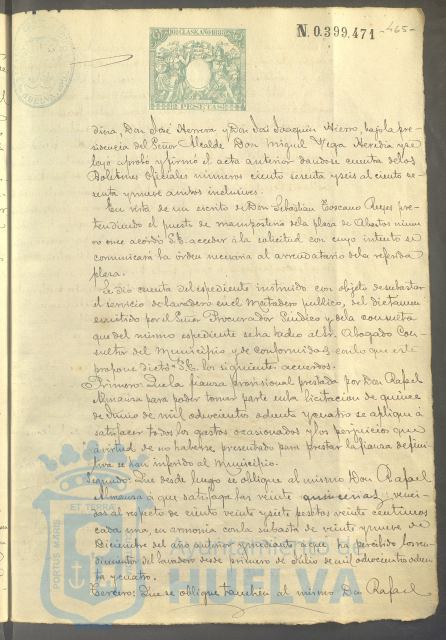 10ª CLASE AÑO 1885
2 PESETAS
N. 0.399,471
-465-
dina, Don José Herrera y Don José Joaquin Hierro, bajo la pre-
sidencia del Señor Alcalde Don Miguel Vega Heredia y se
leyó aprobó y firmó el acta anterior dandose cuenta de los
Boletines Oficiales números ciento sesenta y seis al ciento se-
senta y nueve ambos inclusives.
En vista de un escrito de Don Sebastian Toscano Reyes pre-
tendiendo el puesto de mamposteria de la plaza de Abastos núme-
ro once acordó S.E. acceder á la solicitud con cuyo intento se
comunicará la órden necesaria al arrendatario de la referida
plaza.
Se dió cuenta del espediente instruido con objeto de subastar
el servicio de lavadero en el Matadero público, del dictamen
emitido por el Señor Procurador Síndico y de la consulta
que del mismo espediente se ha hecho al Sr. Abogado Con-
sultor del Municipio y de conformidad con lo que este
propone dictó S.E. los siguientes acuerdos.
Primero: Que la fianza provisional prestada por Don Rafael
Almansa para poder tomar parte en la licitacion de quince
de Junio de mil ochocientos ochenta y cuatro se aplique á
satisfacer todos los gastos ocasionados y los perjuicios que
á virtud de no haberse presentado para prestar la fianza defini-
tiva se han inferido al Municipio.
Segundo: Que desde luego se oblique al mismo Don Rafael
Almansa á que satisfaga las veinte quincenas, venci-
das al respecto de ciento veinte y siete pesetas veinte centimos
cada una, en armonía con la subasta de veinte y nueve de
Diciembre del año anterior y mediante á que ha percibido los ren-
dimientos del lavadero desde primero de Julio de mil ochocientos ochen-
ta y cuatro.
Tercero: Que se oblique tambien al mismo Don Rafael
PORTUS MARIS ET TERRAE
Ayuntamiento de
HUELVA